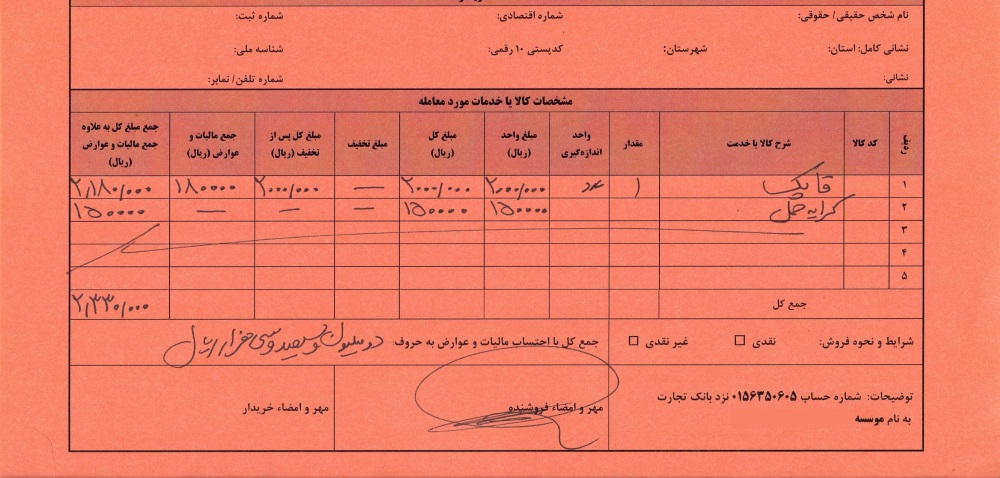 نام شخص حقیقی/ حقوقی: شماره اقتصادی: شماره ثبت:
نشانی کامل: استان: شهرستان: کدپستی ۱۰ رقمی: شناسه ملی:
نشانی: شماره تلفن/ نمابر:
مشخصات کالا یا خدمات مورد معامله
ردیف کد کالا شرح کالا یا خدمت مقدار واحد اندازه‌گیری مبلغ واحد (ریال) مبلغ کل (ریال) مبلغ تخفیف مبلغ کل پس از تخفیف (ریال) جمع مالیات و عوارض (ریال) جمع مبلغ کل به علاوه جمع مالیات و عوارض (ریال)
۱ ۱ عدد ۲,۰۰۰/۰۰۰ ۲۰۰۰/۰۰۰ — ۲۰۰۰/۰۰۰ ۱۸۰۰۰۰ ۲,۱۸۰/۰۰۰
۲ کرایه حمل ۱۵۰۰۰۰ ۱۵۰۰۰۰ — — — ۱۵۰۰۰۰
۳
۴
۵
جمع کل ۲,۳۳۰/۰۰۰
شرایط و نحوه فروش: نقدی غیر نقدی جمع کل با احتساب مالیات و عوارض به حروف: دو میلیون و سیصد و سی هزار ریال
توضیحات: شماره حساب ۰۱۵۶۳۵۰۶۰۵ نزد بانک تجارت
به نام موسسه
مهر و امضاء فروشنده مهر و امضاء خریدار